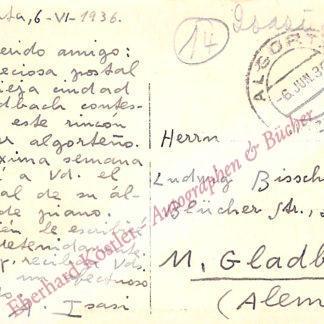 ta, 6-VI-1936.
erido amigo:
eciosa postal
ieja ciudad
dbach contes-
este rincón
r algorteño.
xima semana
á a Vd. el
al de su ál-
de piano.
én le escribi
detenidamente
recib Vds.
un afectuoso
Isasi
14
ALGORT
-6 JUN. 3
Herrn
Ludwig Bissch
Blücher Str.,
M. Gladb
(Alem
Eberhard Köstler - Autographen & Bücher